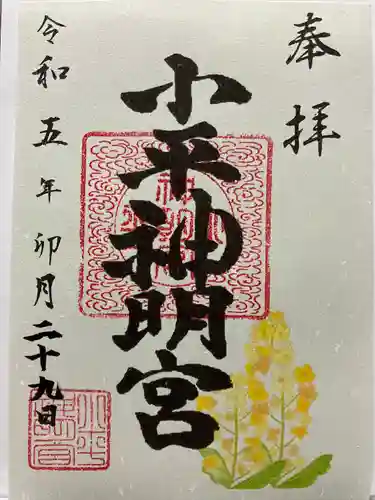 奉拝
小平神明宮
令和五年卯月二十九日